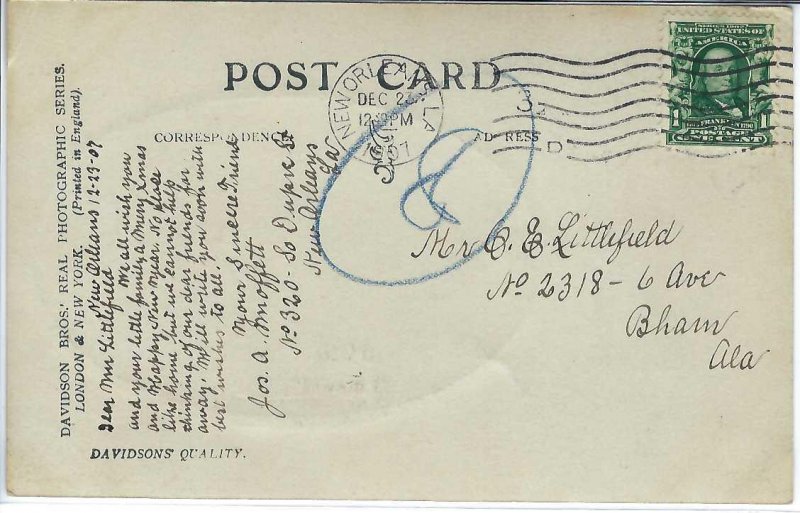 POST CARD
CORRESPONDENCE
ADDRESS
NEW ORLEANS, LA
DEC 23
12 PM
1907
D
SERIES 1902
UNITED STATES OF
AMERICA
FRANKLIN
POSTAGE
1 ONE CENT 1
8
DAVIDSON BROS.' REAL PHOTOGRAPHIC SERIES.
LONDON & NEW YORK. (Printed in England).
DAVIDSONS' QUALITY.
New Orleans 12-23-07
Dear Mr Littlefield
We all wish you
and your little family a Merry Xmas
and Happy New Year. No place
like home but we cannot help
thinking of our dear friends far
away. Will write you soon with
best wishes to all.
Your Sincere Friend
Jos. A. Moffett
No 320 - So St
New Orleans
La
Mr C. E. Littlefield
No 2318 - 6 Ave
Bham
Ala